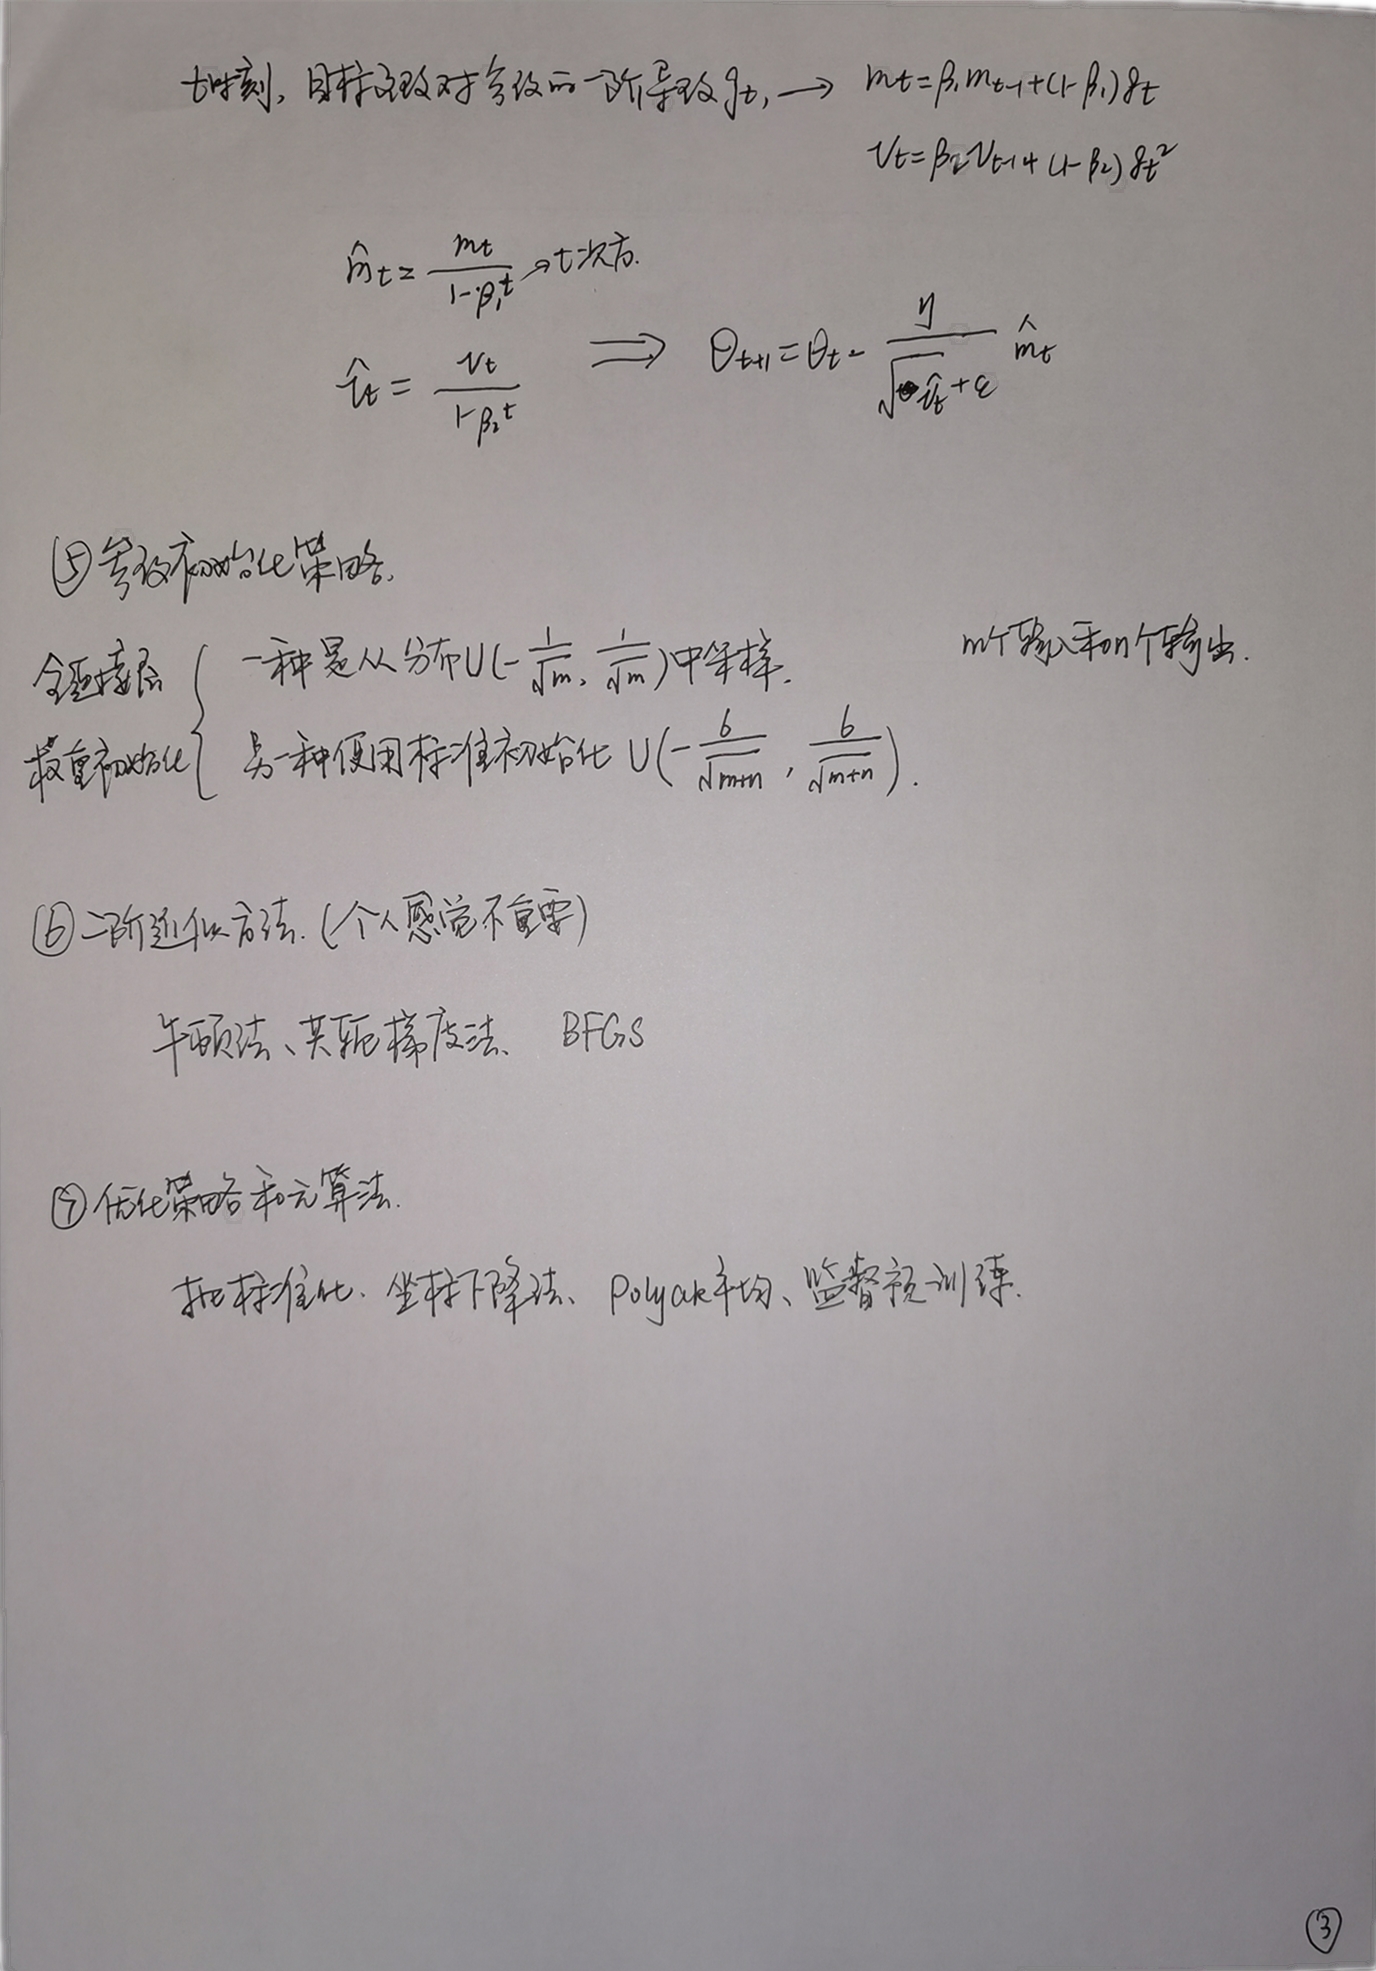 t时刻, 目标函数对参数的一阶导数 g_t, → m_t = β₁m_{t-1} + (1-β₁)g_t
v_t = β₂v_{t-1} + (1-β₂)g_t²
m̂_t = m_t / (1-β₁^t) → t次方.
v̂_t = v_t / (1-β₂^t) ⟹ θ_{t+1} = θ_t - η / (√v̂_t + ε) m̂_t
⑤ 参数初始化策略.
全连接层 权重初始化 { 一种是从分布U(-1/√m, 1/√m)中采样. m个输入和n个输出.
另一种使用标准初始化 U(-6/√(m+n), 6/√(m+n)).
⑥ 二阶近似方法. (个人感觉不重要)
牛顿法、共轭梯度法、BFGS
⑦ 优化策略和元算法.
批标准化、坐标下降法、Polyak平均、监督预训练.
③